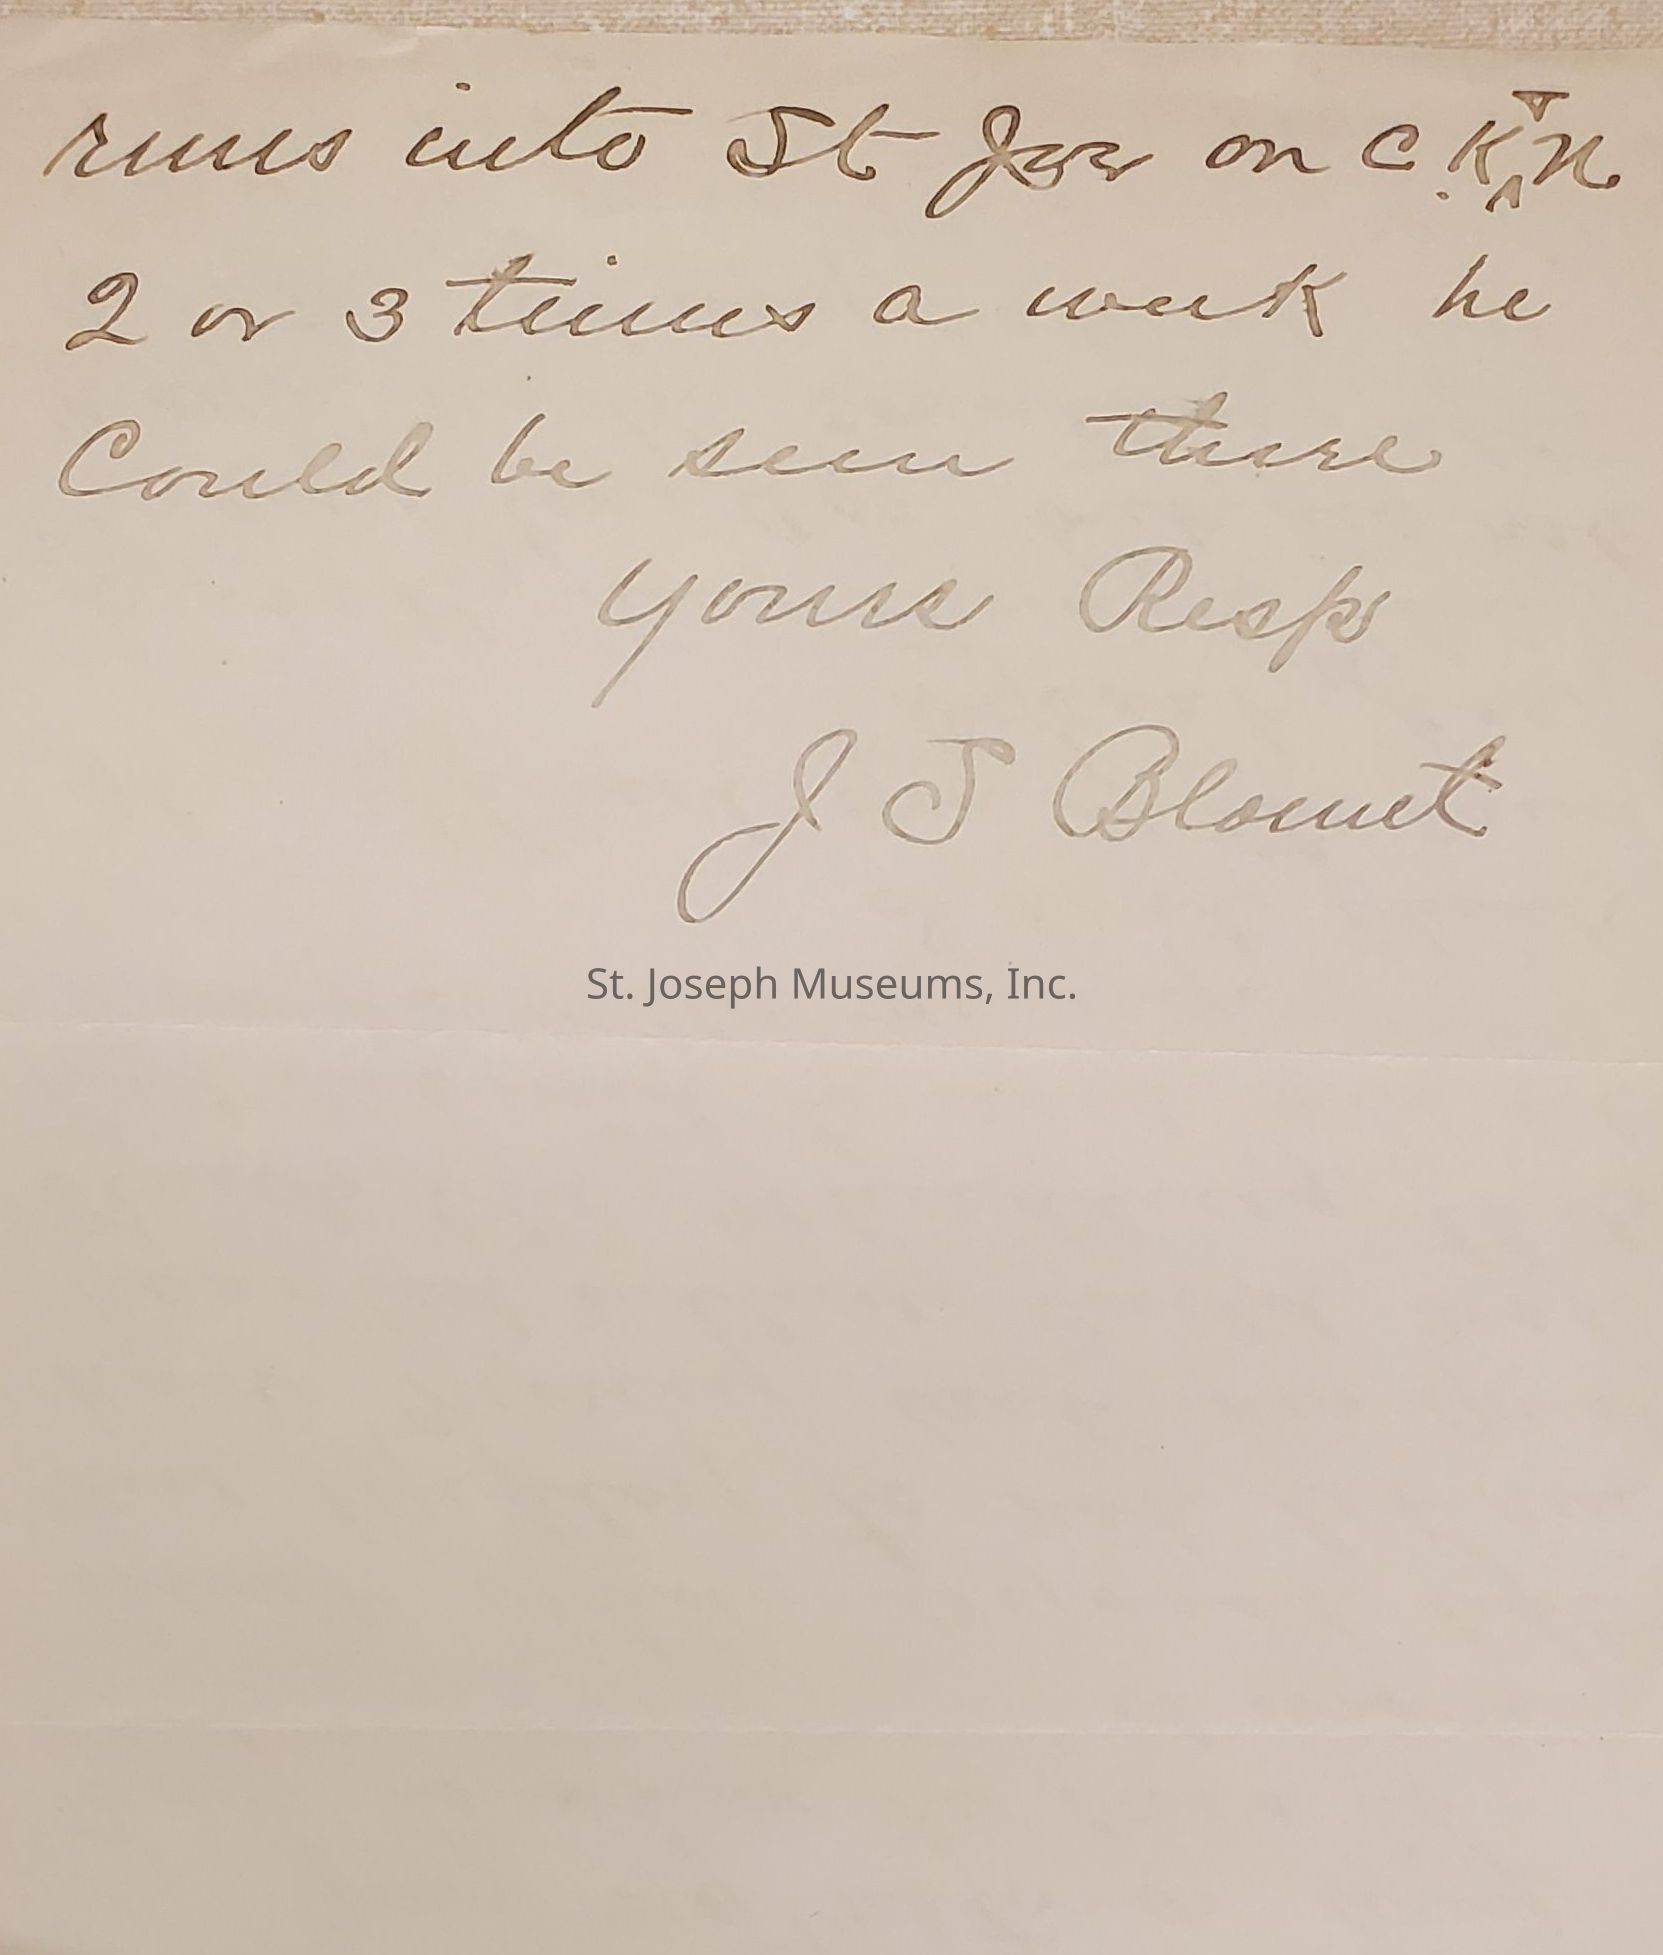 runs into St Joe on C. K & N.
2 or 3 times a week he
Could be seen there
Yours Resp
J S Blomet
St. Joseph Museums, Inc.